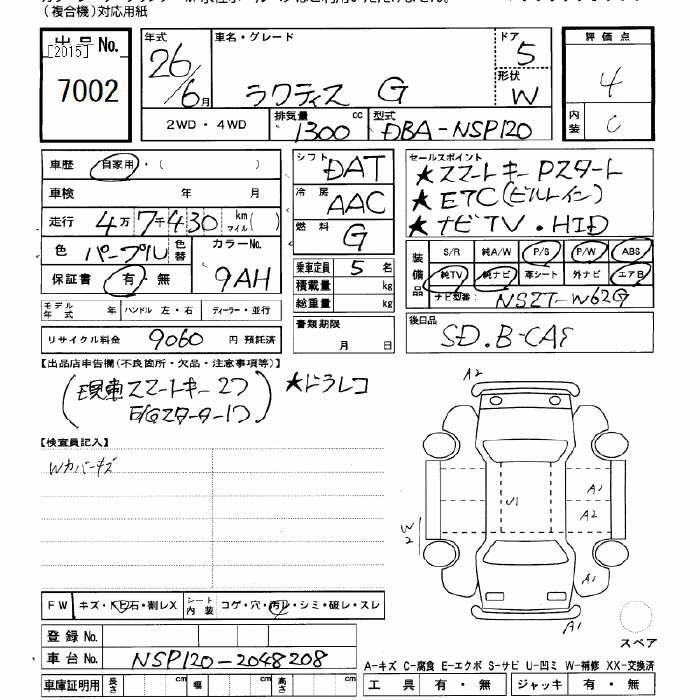 (複合機)対応用紙
出品No.
[2015]
7002
年式 車名・グレード ドア
26/6月 ラクティス G 5
形状 W
2WD・4WD 排気量 1300 cc 型式 DBA-NSP120
評価点
4
内装 C
車歴 自家用・( )
車検 年 月
走行 4万7千430 km マイル( )
色 パープル 色替 カラーNo.
9AH
保証書 有・無
モデル年式 年 ハンドル 左・右 ディーラー・並行
リサイクル料金 9060 円 預託済
シフト DAT
冷房 AAC
燃料 G
乗車定員 5 名
積載量 kg
総重量 kg
書類期限
月 日
セールスポイント
★スマートキー Pスタート
★ETC(ビルトイン)
★ナビTV・HID
装備品 S/R 純A/W P/S P/W ABS
純TV 純ナビ 革シート 外ナビ エアB
ナビ型番: NSZT-W62G
後日品
SD.B-CAS
【出品店申告欄(不良箇所・欠品・注意事項等)】
(現車スマートキー2つ ★ドラレコ
E/Gスターター1つ)
【検査員記入】
Wカバーキズ
A2
U1
A1
A2
W2
A1
A1
スペア
FW キズ・ヒビ石・割レX シート内装 コゲ・穴・汚レ・シミ・破レ・スレ
登録No.
車台No. NSP120-2048208
車庫証明用 長さ cm 幅 cm 高さ cm
A-キズ C-腐食 E-エクボ S-サビ U-凹ミ W-補修 XX-交換済
工具 有・無 ジャッキ 有・無